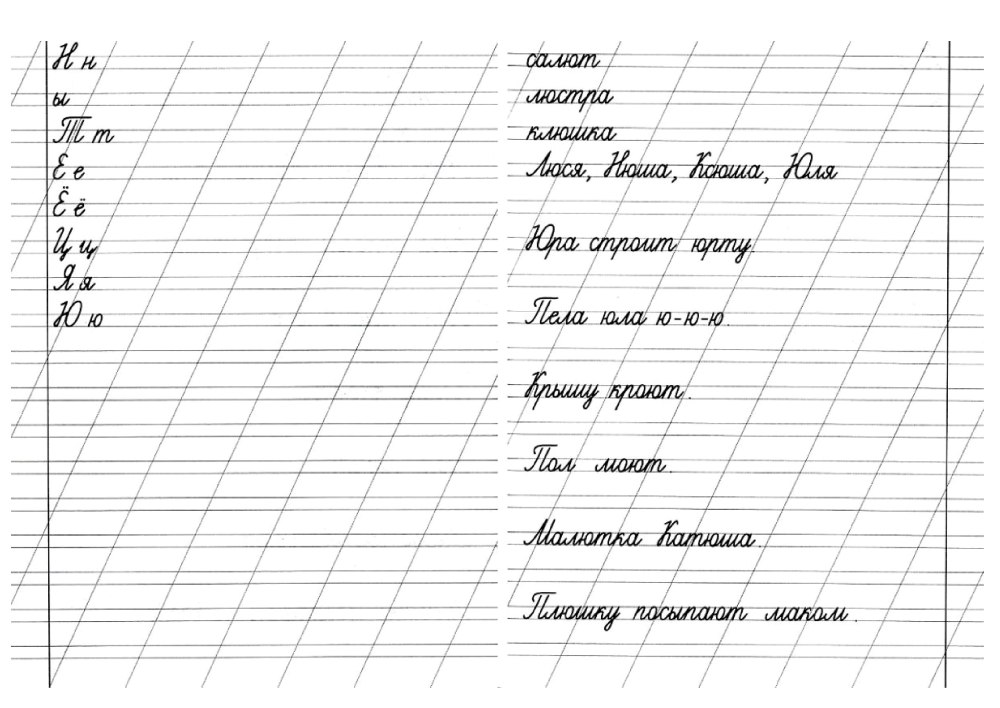 Н н
ы
Т т
Е е
Ё ё
Ц ц
Я я
Ю ю
салют
люстра
клюшка
Люся, Нюша, Ксюша, Юля
Юра строит юрту.
Пела юла ю-ю-ю.
Крышу кроют.
Пол моют.
Малютка Катюша.
Плюшку посыпают маком.